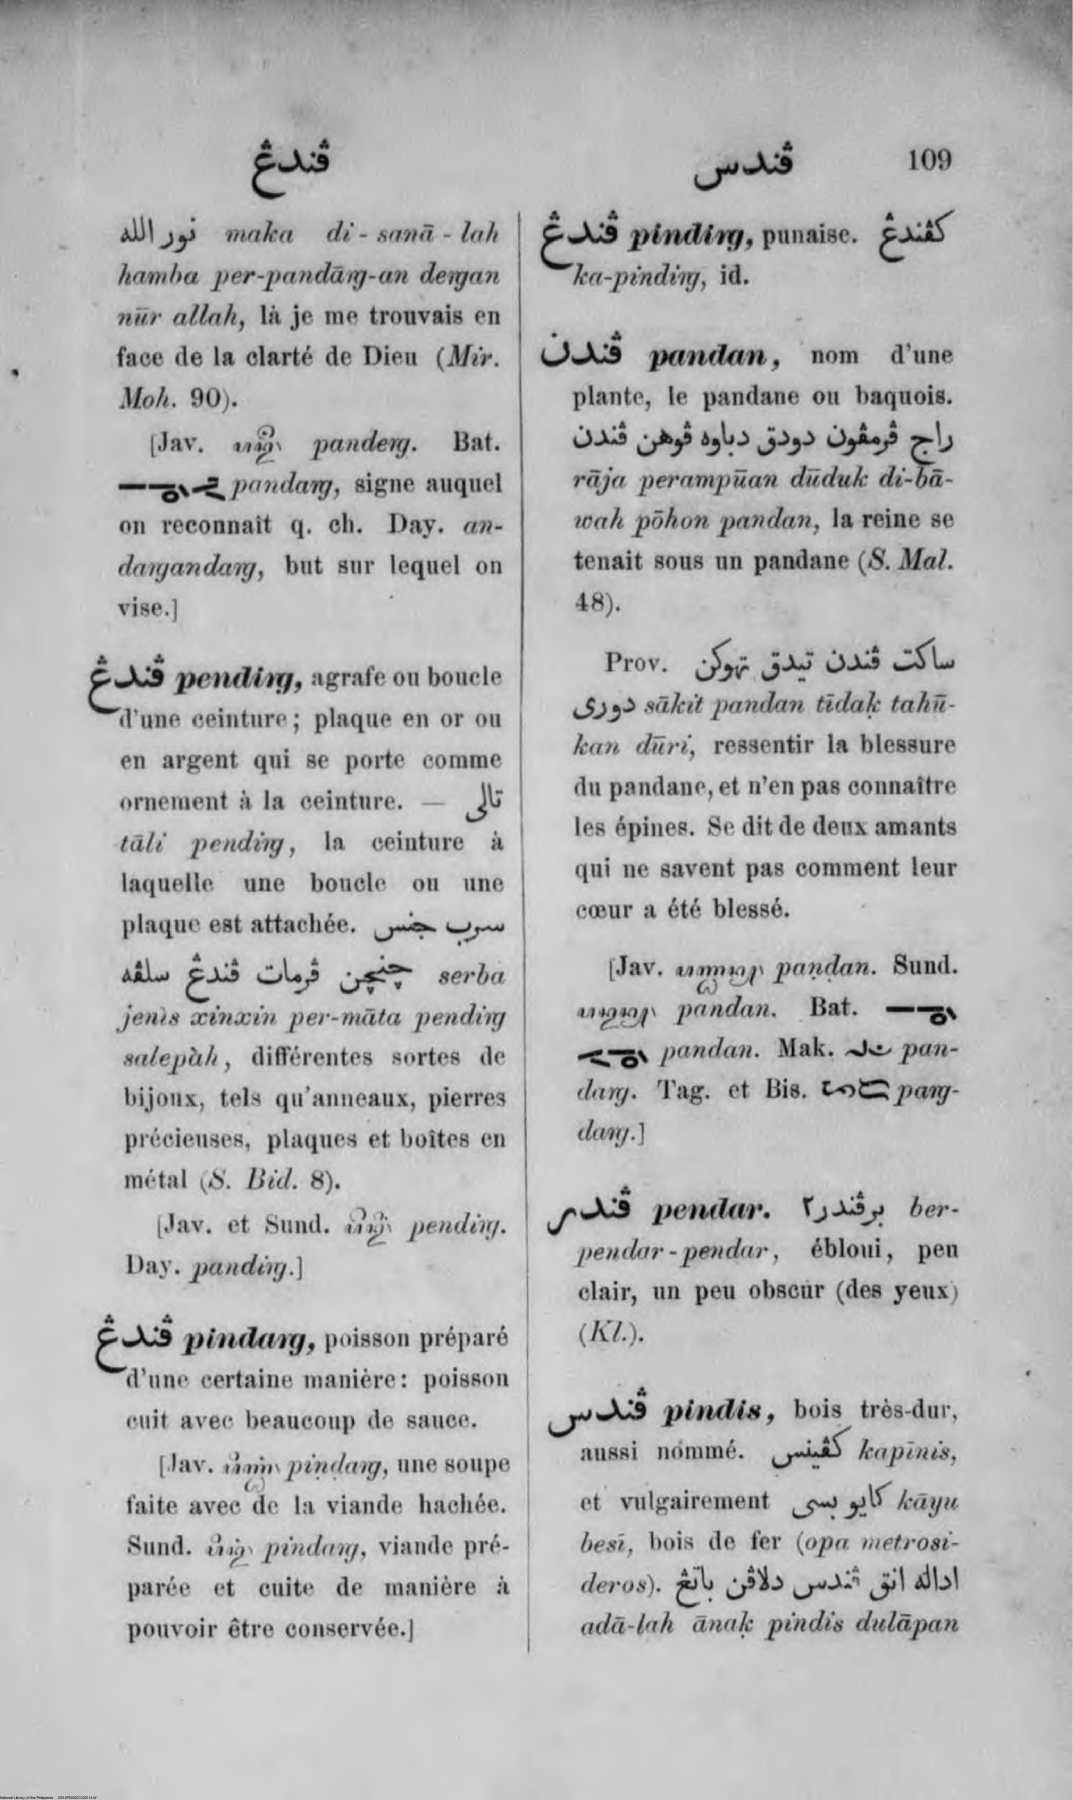 ڤندڠ
ڤندس 109
نور الله maka di-sanā-lah
hamba per-pandāṅg-an deṅgan
nūr allah, là je me trouvais en
face de la clarté de Dieu (Mir.
Moh. 90).
[Jav. pandeṅg. Bat.
pandaṅg, signe auquel
on reconnaît q. ch. Day. an-
daṅgandaṅg, but sur lequel on
vise.]
ڤندڠ pendiṅg, agrafe ou boucle
d'une ceinture; plaque en or ou
en argent qui se porte comme
ornement à la ceinture. — تالى
tāli pendiṅg, la ceinture à
laquelle une boucle ou une
plaque est attachée. سرب جنس
چنچن ڤرمات ڤندڠ سلڤه serba
jenis xinxin per-māta pendiṅg
salepàh, différentes sortes de
bijoux, tels qu'anneaux, pierres
précieuses, plaques et boîtes en
métal (S. Bid. 8).
[Jav. et Sund. pendiṅg.
Day. pandiṅg.]
ڤندڠ pindaṅg, poisson préparé
d'une certaine manière: poisson
cuit avec beaucoup de sauce.
[Jav. piṇḍaṅg, une soupe
faite avec de la viande hachée.
Sund. pindaṅg, viande pré-
parée et cuite de manière à
pouvoir être conservée.]
ڤندڠ pindiṅg, punaise. كڤندڠ
ka-pindiṅg, id.
ڤندن pandan, nom d'une
plante, le pandane ou baquois.
راج ڤرمڤون دودق دباوه ڤوهن ڤندن
rāja perampūan dūduk di-bā-
wah pōhon pandan, la reine se
tenait sous un pandane (S. Mal.
48).
Prov. ساكت ڤندن تيدق تهوكن
دورى sākit pandan tīdaḳ tahū-
kan dūri, ressentir la blessure
du pandane, et n'en pas connaître
les épines. Se dit de deux amants
qui ne savent pas comment leur
cœur a été blessé.
[Jav. paṇḍan. Sund.
pandan. Bat.
pandan. Mak. pan-
daṅg. Tag. et Bis. paṅg-
daṅg.]
ڤندر pendar. برڤندر٢ ber-
pendar-pendar, ébloui, peu
clair, un peu obscur (des yeux)
(Kl.).
ڤندس pindis, bois très-dur,
aussi nommé. كڤينس kapīnis,
et vulgairement كايو بسى kāyu
besī, bois de fer (opa metrosi-
deros). اداله انق ڤندس دلاڤن باتڠ
adā-lah ānaḳ pindis dulāpan